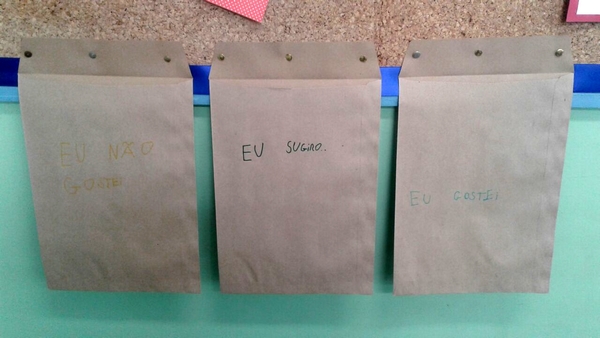 EU NÃO
GOSTEI
EU SUGIRO.
EU GOSTEI